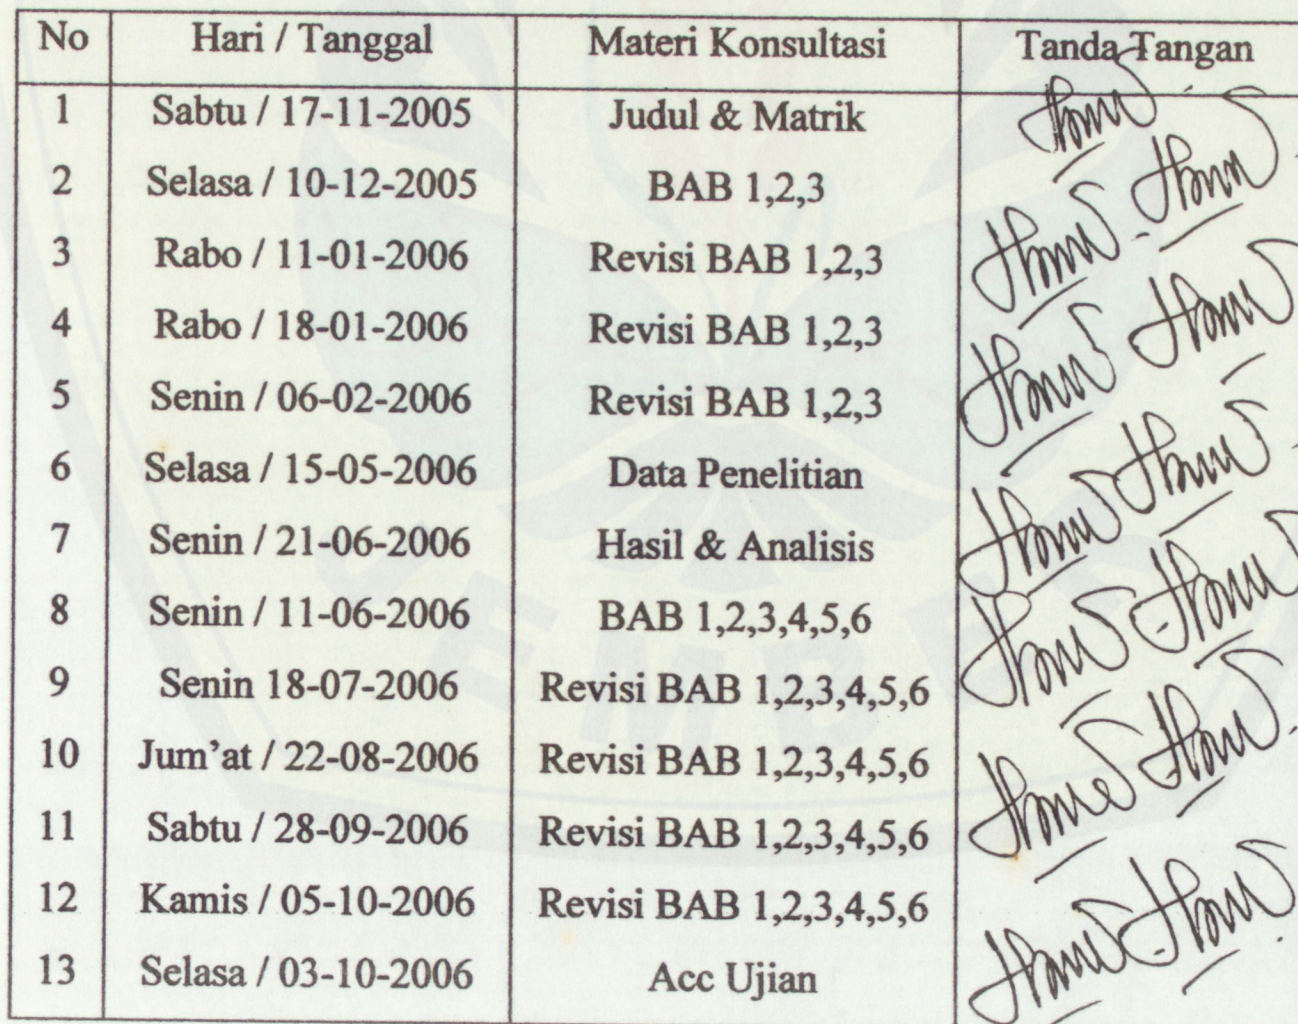 No Hari / Tanggal Materi Konsultasi Tanda Tangan
1 Sabtu / 17-11-2005 Judul & Matrik
2 Selasa / 10-12-2005 BAB 1,2,3
3 Rabo / 11-01-2006 Revisi BAB 1,2,3
4 Rabo / 18-01-2006 Revisi BAB 1,2,3
5 Senin / 06-02-2006 Revisi BAB 1,2,3
6 Selasa / 15-05-2006 Data Penelitian
7 Senin / 21-06-2006 Hasil & Analisis
8 Senin / 11-06-2006 BAB 1,2,3,4,5,6
9 Senin 18-07-2006 Revisi BAB 1,2,3,4,5,6
10 Jum’at / 22-08-2006 Revisi BAB 1,2,3,4,5,6
11 Sabtu / 28-09-2006 Revisi BAB 1,2,3,4,5,6
12 Kamis / 05-10-2006 Revisi BAB 1,2,3,4,5,6
13 Selasa / 03-10-2006 Acc Ujian
JEMBER